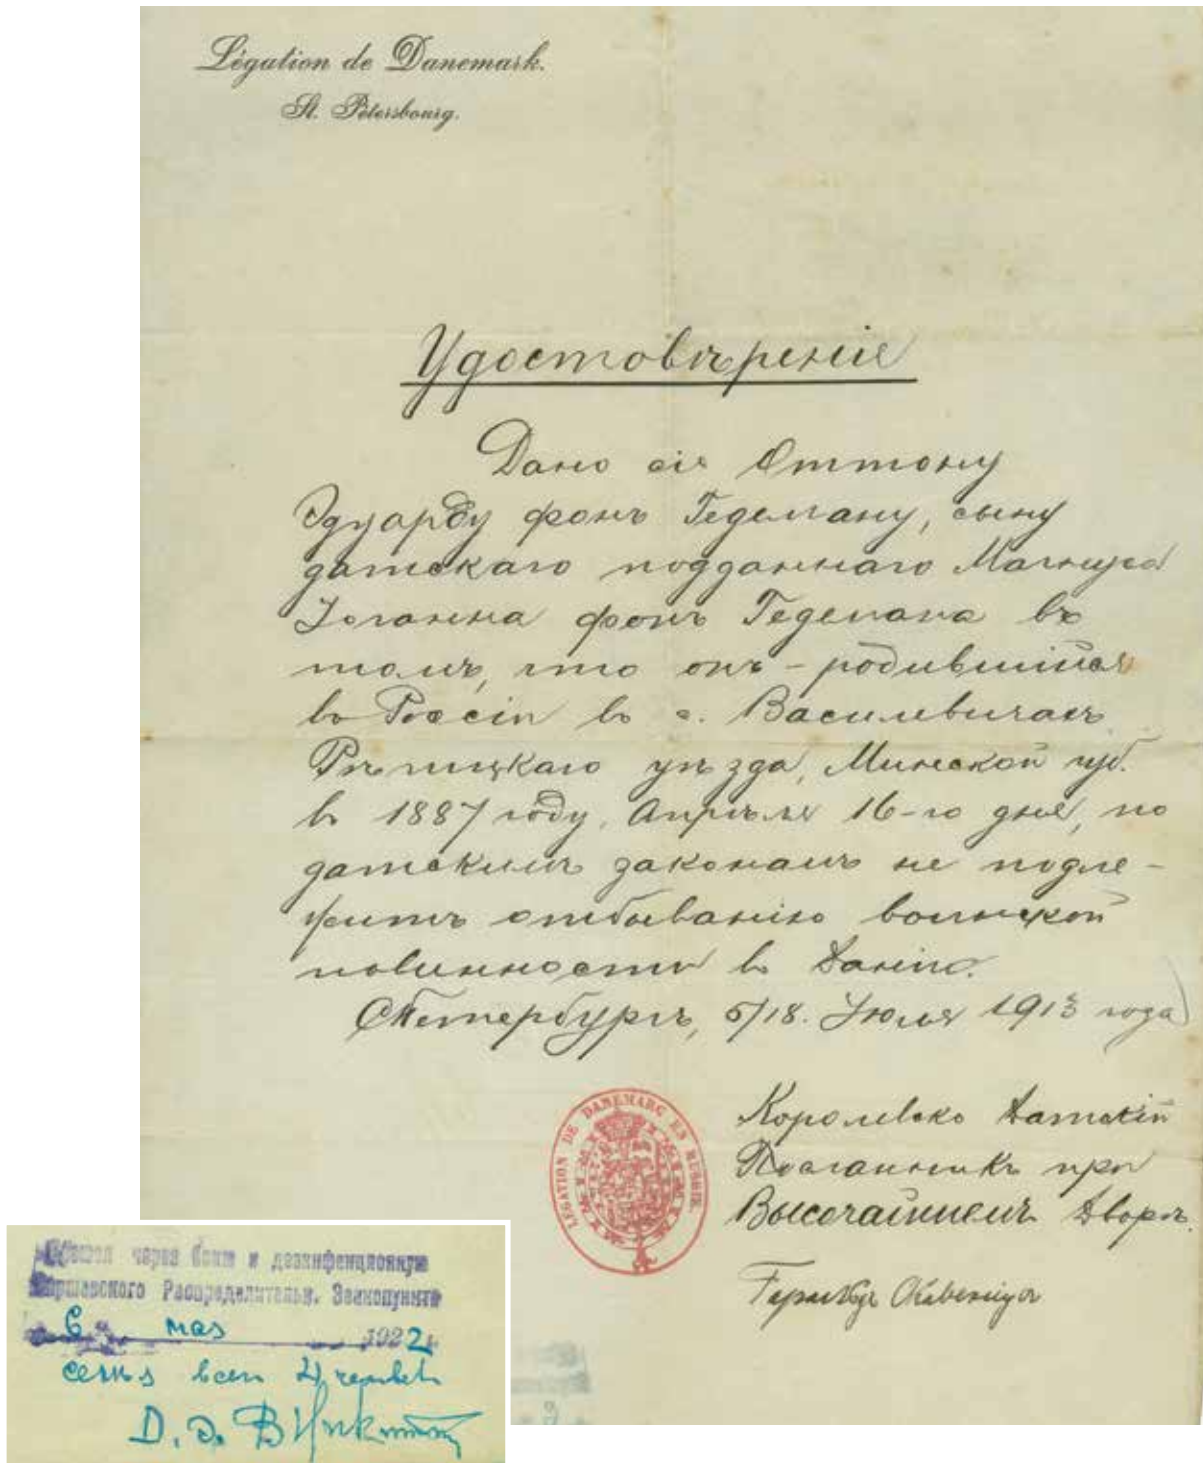 Légation de Danemark.
St. Pétersbourg.
Удостовѣреніе
Дано сіе Оттону
Эдуарду фонъ Гедеману, сыну
датскаго подданнаго Магнуса
Іоганна фонъ Гедемана въ
томъ, что онъ - родившійся
въ Россіи въ с. Василевичахъ
Рѣчицкаго уѣзда, Минской губ.
въ 1887 году, Апрѣля 16-го дня, по
датскимъ законамъ не подле-
житъ отбыванію воинской
повинности въ Даніи.
СПетербургъ, 5/18. Іюля 1913 года
Королевско Датскій
Посланникъ при
Высочайшемъ Дворѣ.
Гаральдъ Скавеніусъ
LÉGATION DE DANEMARC EN RUSSIE.
через баню и дезинфекционную
Распределительн. Эвакопункта
6 мая 1922 г.
семья всего 4 человек
Д. Э. В Никит